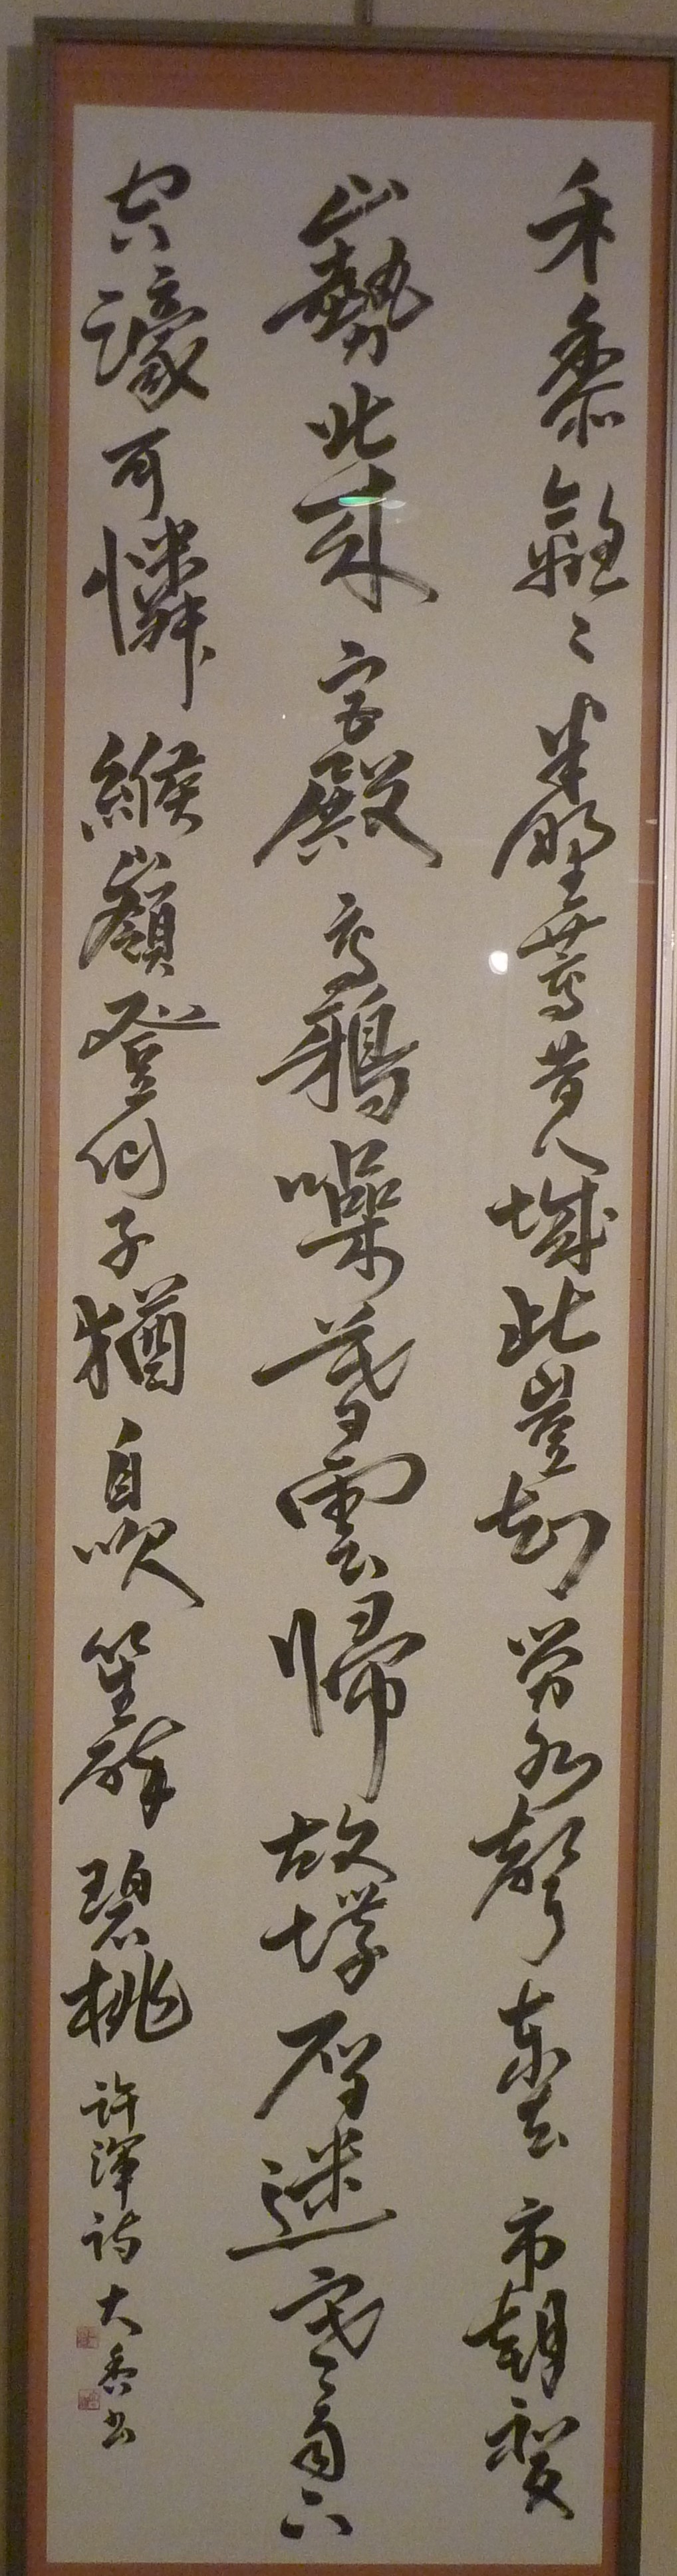 禾黍離々半野蒿昔人城此豈知勞水聲東去市朝變
山勢北來宮殿高鴉噪暮雲歸故堞雁迷寒雨下
空濠可憐緱嶺登仙子猶自吹笙醉碧桃 許渾詩 大香书